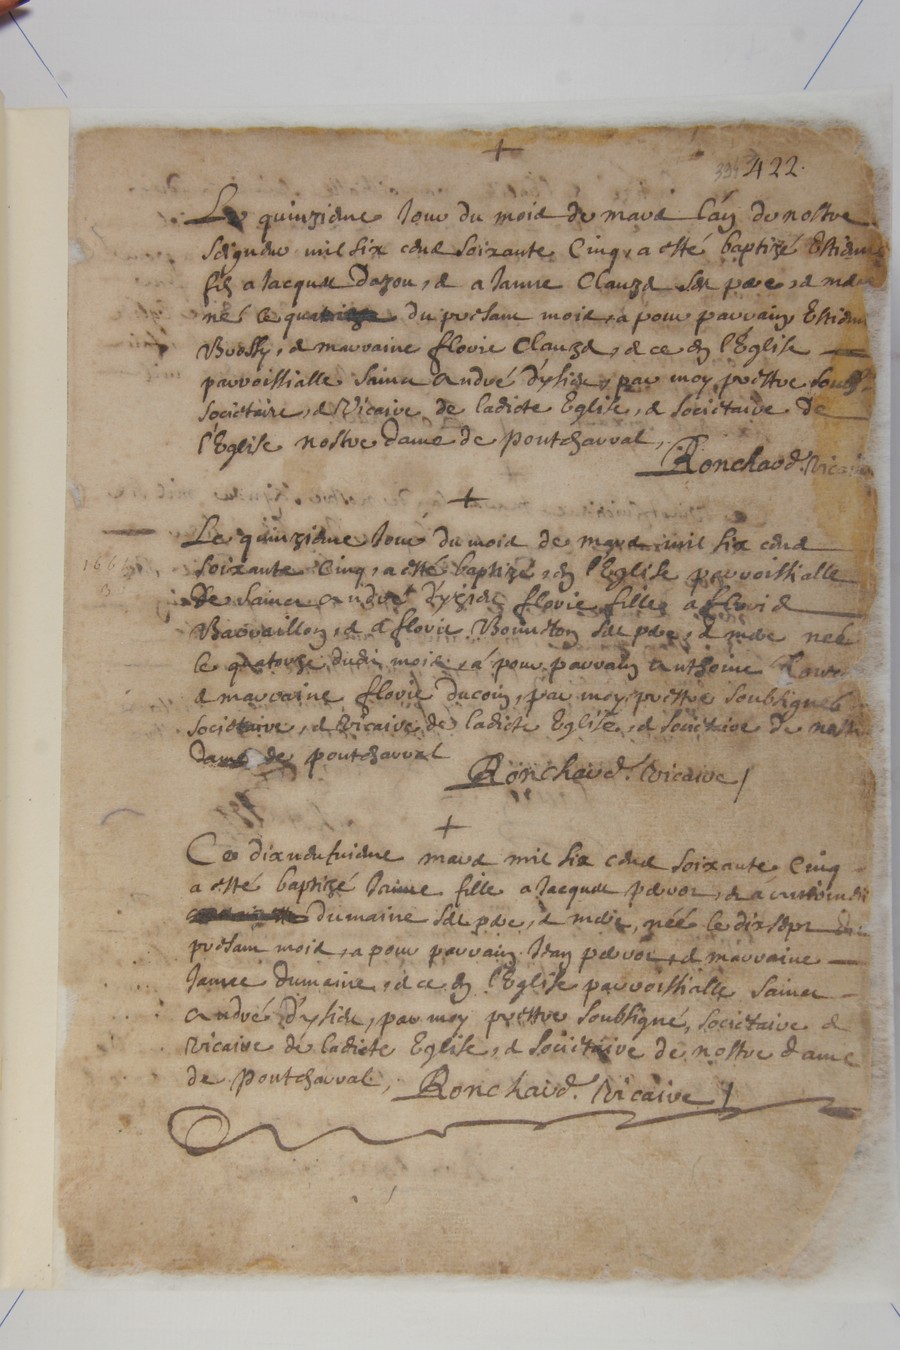 +
395 422.
Le quinzieme Jour du mois de mars l'an de nostre
Seigneur mil six cens soixante Cinq, a esté baptizé Estienne
filz a Jacques Dozou, & a Janne Clauze ses pere, & mere
né le du presant mois, a pour parrain Estienne
& marraine florie Clauze, & ce en l'Eglise
parroissialle Sainct André d'yside, par moy prestre soubs
Societaire, & Vicaire de ladicte Eglise, & societaire de
l'Eglise nostre dame de pontcharral,
Ronchaud. Vicaire
+
Le quinzieme Jour du mois de mars mil six cens
soixante Cinq, a esté baptizé, en l'Eglise parroissialle
de Sainct André d'yside florie fille a floris
Barraillon, & a florie ses pere, & mere née
le quatorze dudit mois, a pour parrain Anthoine
& marraine florie ducoin, par moy prestre soubsigné
Societaire, & Vicaire de ladicte Eglise, & Societaire de nostre
Dame de pontcharral
Ronchaud. Vicaire
+
Ce dixneufvieme mars mil six cens soixante Cinq
a esté baptizé Janne fille a Jacques & a
Dumaine ses pere, & mere, née le dixsept du
presant mois, a pour parrain Jean & marraine
Janne Dumaine, & ce en l'Eglise parroissialle Sainct
André d'yside, par moy prestre soubsigné, Societaire &
Vicaire de ladicte Eglise, & Societaire de nostre dame
de pontcharral, Ronchaud. Vicaire